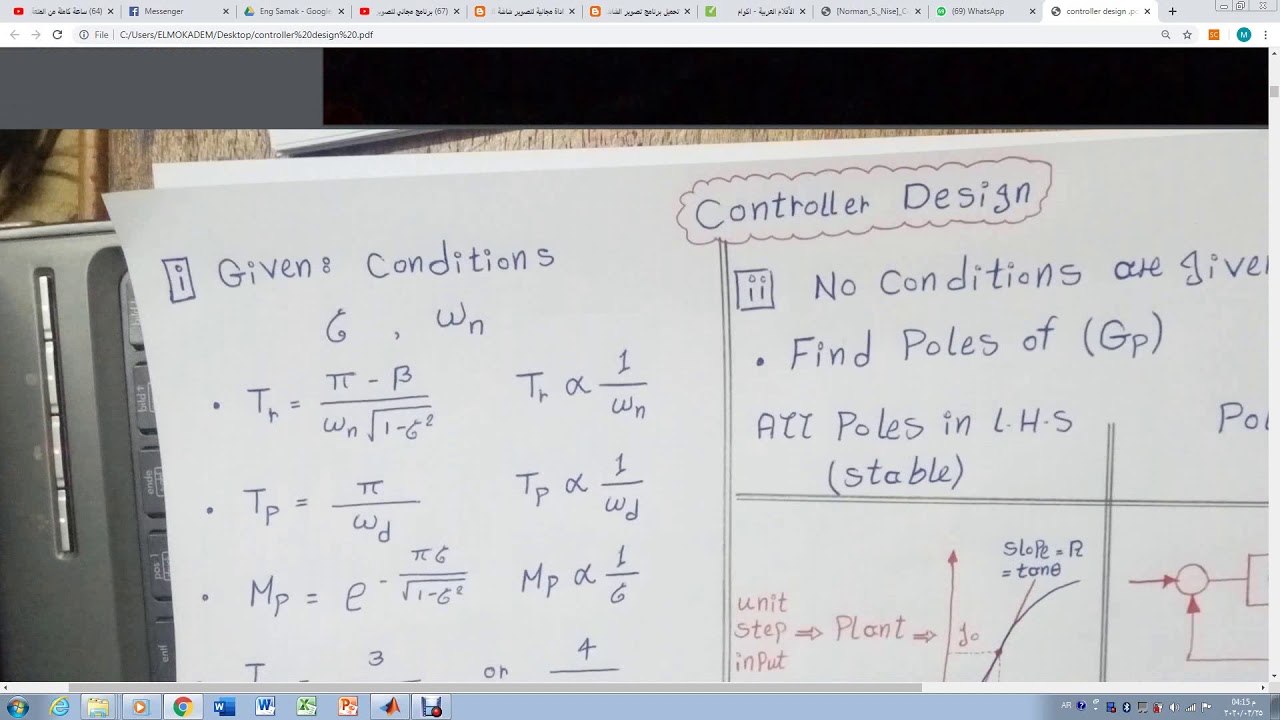 (64) ساعة كاملة من الفتة
Messenger
Eng Samak - Google
(67) برنامج مجاني لتصوير
اداة مجانية لتصوير شاشة ا
تحميل برنامج تصوير الشا
الأفلام العربية - اكوام
[Norman_S._Nise]_C
(69) WhatsApp
controller design .pd
File | C:/Users/ELMOKADEM/Desktop/controller%20design%20.pdf
Controller Design
i Given: Conditions
ϭ , ωn
• Tr = π - β / ωn √1-ϭ² Tr ∝ 1/ωn
• Tp = π / ωd Tp ∝ 1/ωd
• Mp = e^(- πϭ / √1-ϭ²) Mp ∝ 1/ϭ
3 or 4
ii No Conditions are given
• Find Poles of (Gp)
All Poles in L.H.S
(stable)
unit
step ⇒ Plant ⇒
input
slope = R
= tanθ
yo
AR
04:15 م
٢٠٢٠/٠٣/٢٥